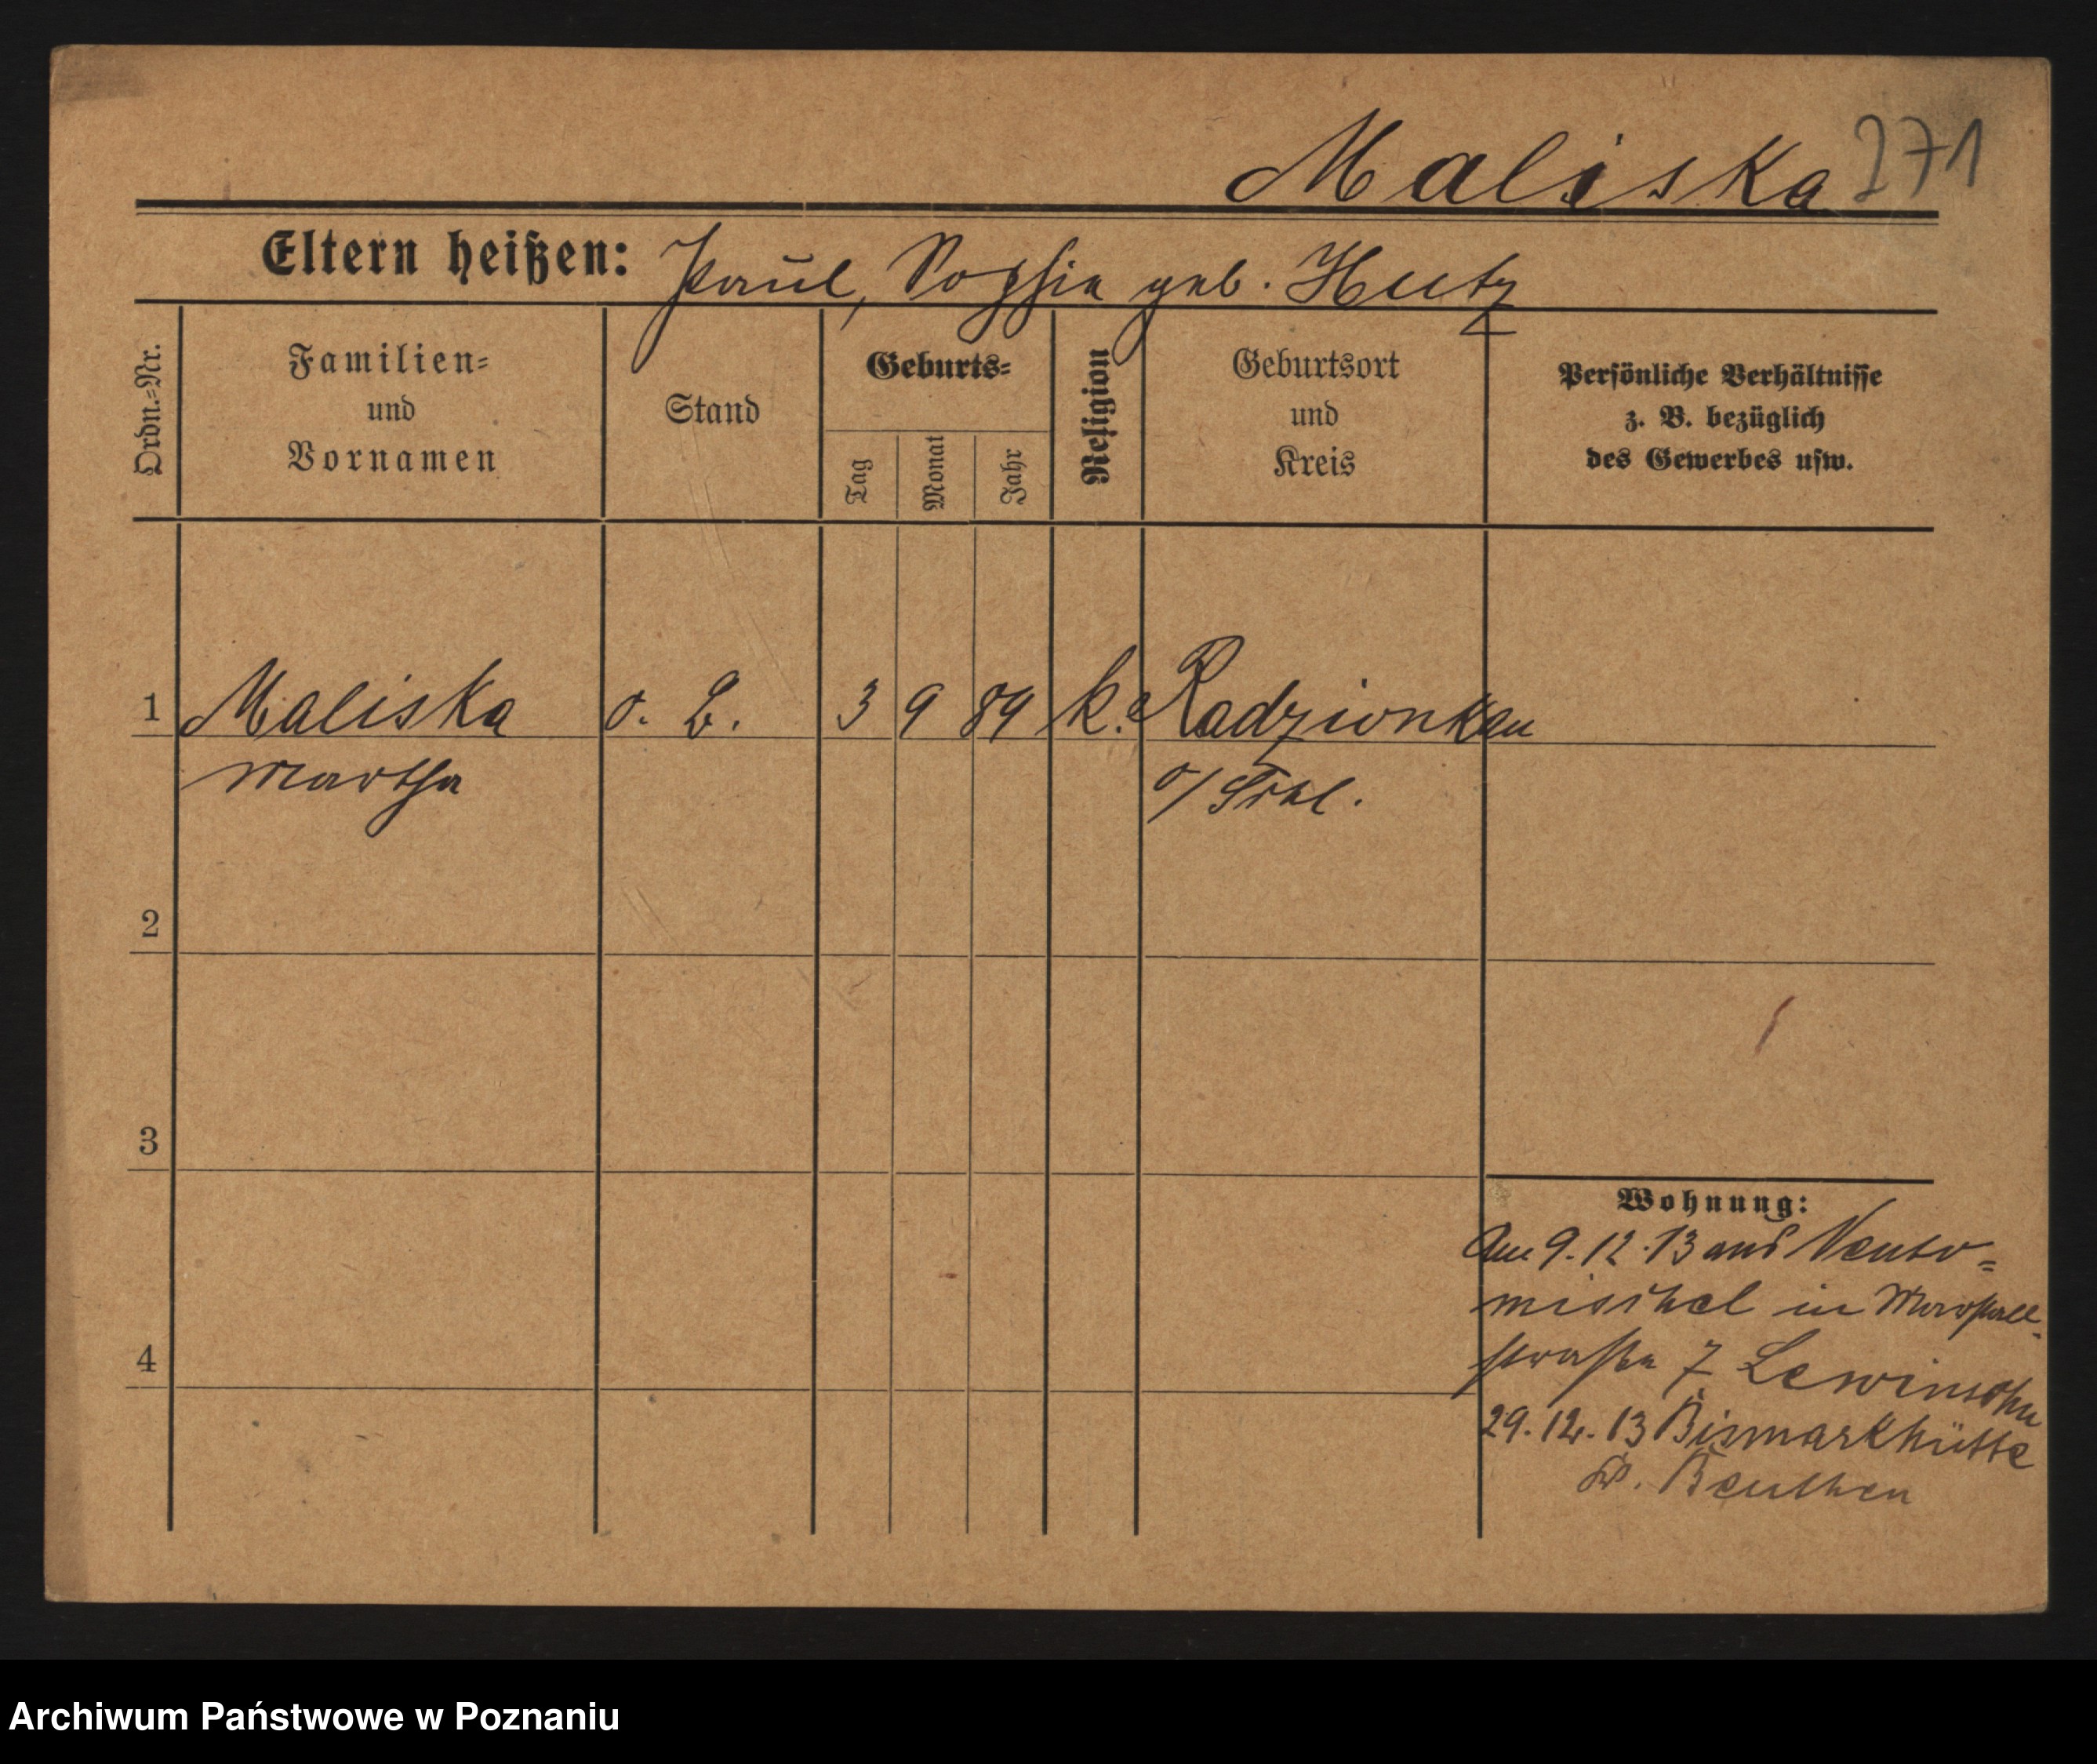 Maliska 271
Eltern heißen: Paul, Sophie geb. Hutz
Ordn.-Nr.
Familien-
und
Vornamen
Stand
Geburts-
Tag
Monat
Jahr
Religion
Geburtsort
und
Kreis
Persönliche Verhältnisse
z. B. bezüglich
des Gewerbes usw.
1 Maliska o. B. 3 9 89 k. Radzionkau
Martha o/Schl.
2
3
4
Wohnung:
Am 9.12.13 aus Neuto=
mischel in Marstall-
straße 7 Lewinsohn
29.12.13 Bismarkhütte
Kr. Beuthen
Archiwum Państwowe w Poznaniu